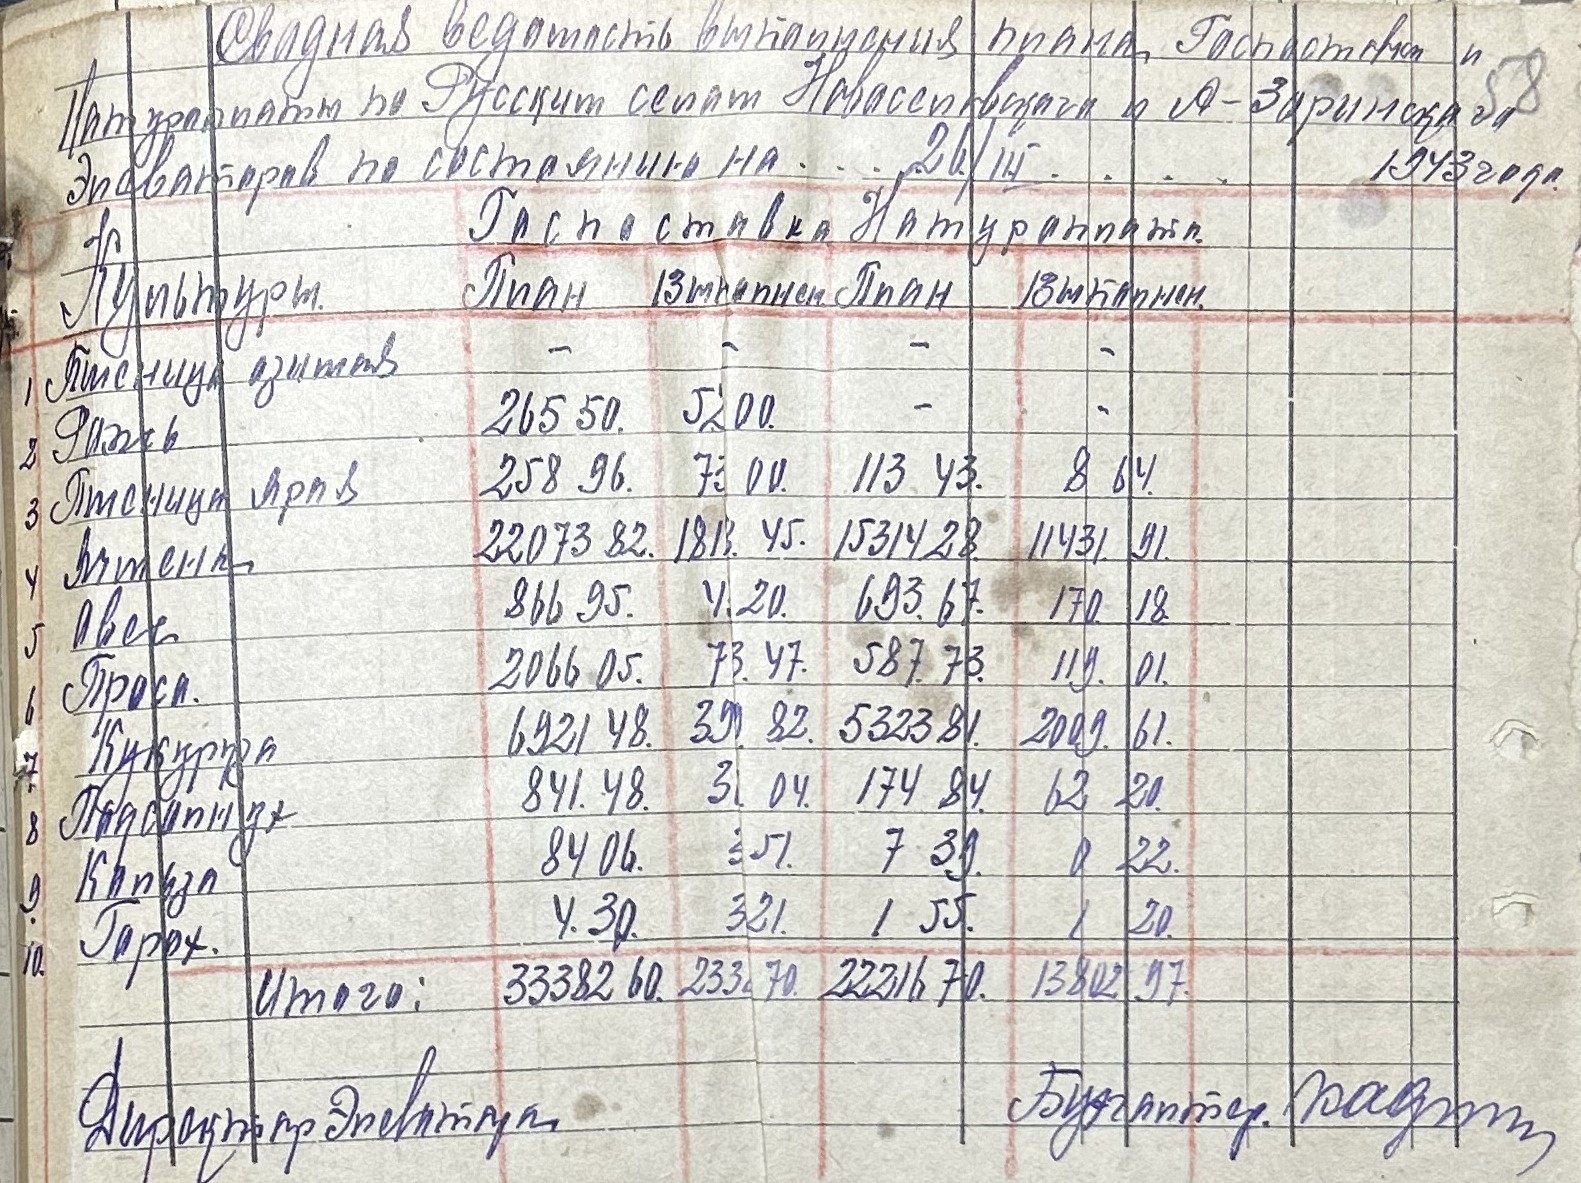 Сводная ведомость выполнения плана Госпоставки и
58
Натуроплаты по Русским селам Новоселовского и А-Заринского
Элеваторов по состоянию на . . . 20/III . . . . 1943 года.
Госпоставка Натуроплата
Культуры. План Выполнен План Выполнен.
1 Пшеница озимая - - - -
2 Рожь 265 50. 52 00. - -
3 Пшеница яров 258 96. 73 00. 113 43. 8 64.
4 Ячмень 22073 82. 1813. 45. 15314 28 11431. 91.
5 Овес 866 95. 4. 20. 693. 67. 170 18.
6 Просо. 2066 05. 73. 47. 587. 73. 119. 01.
7 Кукуруза 6921 48. 82. 5323 81. 2009. 61.
8 Подсолнух 841. 48. 04. 174 84. 62 20.
9. Кольза 84 06. 3 51. 7 39. 0 22.
10. Горох. 4. 30. 3 21. 1 55. 1 20.
Итого: 33382 60. 70. 22216 70. 13802 97.
Директор Элеватора Бухгалтер.